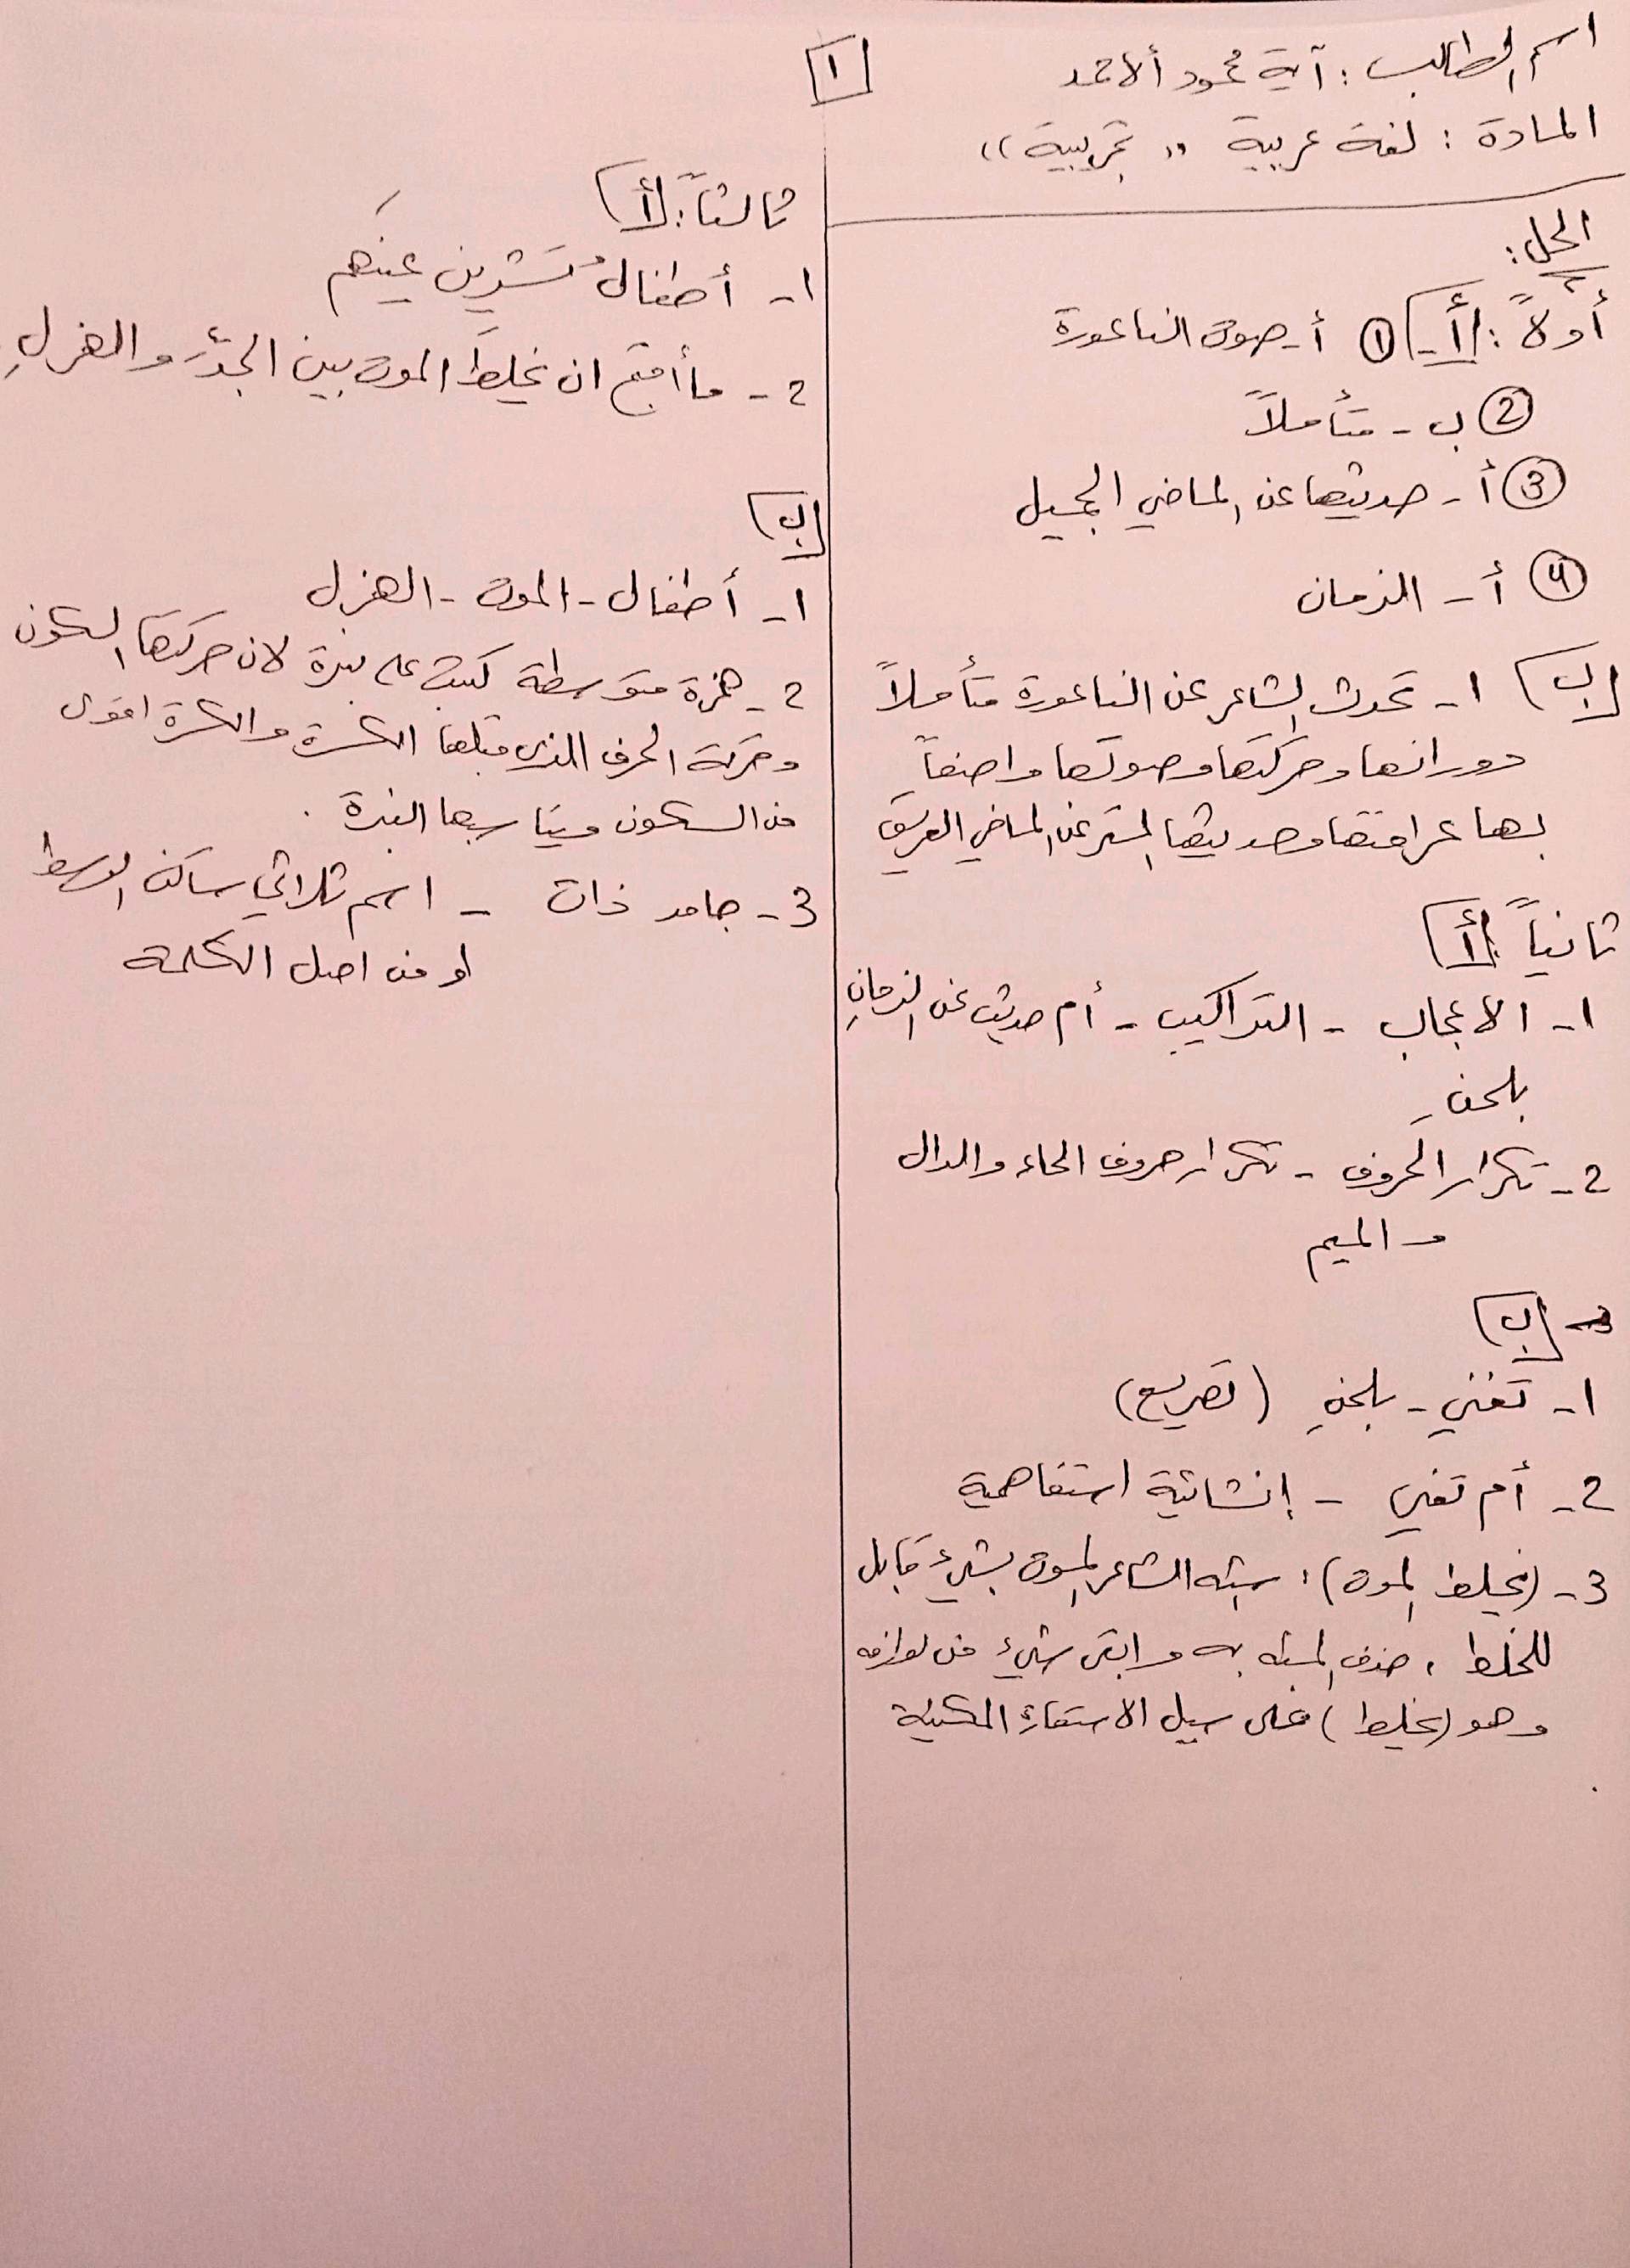 اسم الطالب : آية محمود الاحمد
المادة : لغة عربية " تجريبية "
١
الحل :
أولاً : أ - ① أ - صوت الناعورة
② ب - متأملاً
③ أ - حديثها عن الماضي الجميل
④ أ - الزمان
ب ١ - تحدث الشاعر عن الناعورة متأملاً
دورانها وحركتها وصوتها واصفاً
بها عراقتها وحديثها المستمر عن الماضي العريق
ثانياً : أ
١ - الاعجاب - التراكيب - أم حديث عن الزمانِ
بلحنِ
2 - تكرار الحروف - تكرار حروف الحاء والدال
والميم
ب
١ - تغني - بلحنِ (تصريع)
2 - أم تغني - إنشائية استفاهمية
3 - (يخلط الموت) : شبه الشاعر الموت بشيء قابل
للخلط ، حذف المشبه به وابقى شيء من لوازمه
وهو (يخلط) على سبيل الاستعارة المكنية
ثالثاً : أ
١ - أطفالُ تشرين عينهم
2 - ما أقبح ان يخلطَ الموت بين الجدِّ والهزلِ
ب
١ - أطفال - الموت - الهزل
2 - همزة متوسطة كتبت على نبرة لان حركتها السكون
وحركة الحرف الذي قبلها الكسرة والكسرة اقوى
من السكون ويناسبها النبرة .
3 - جامد ذات - اسم ثلاثي ساكن الوسط
او من اصل الكلمة